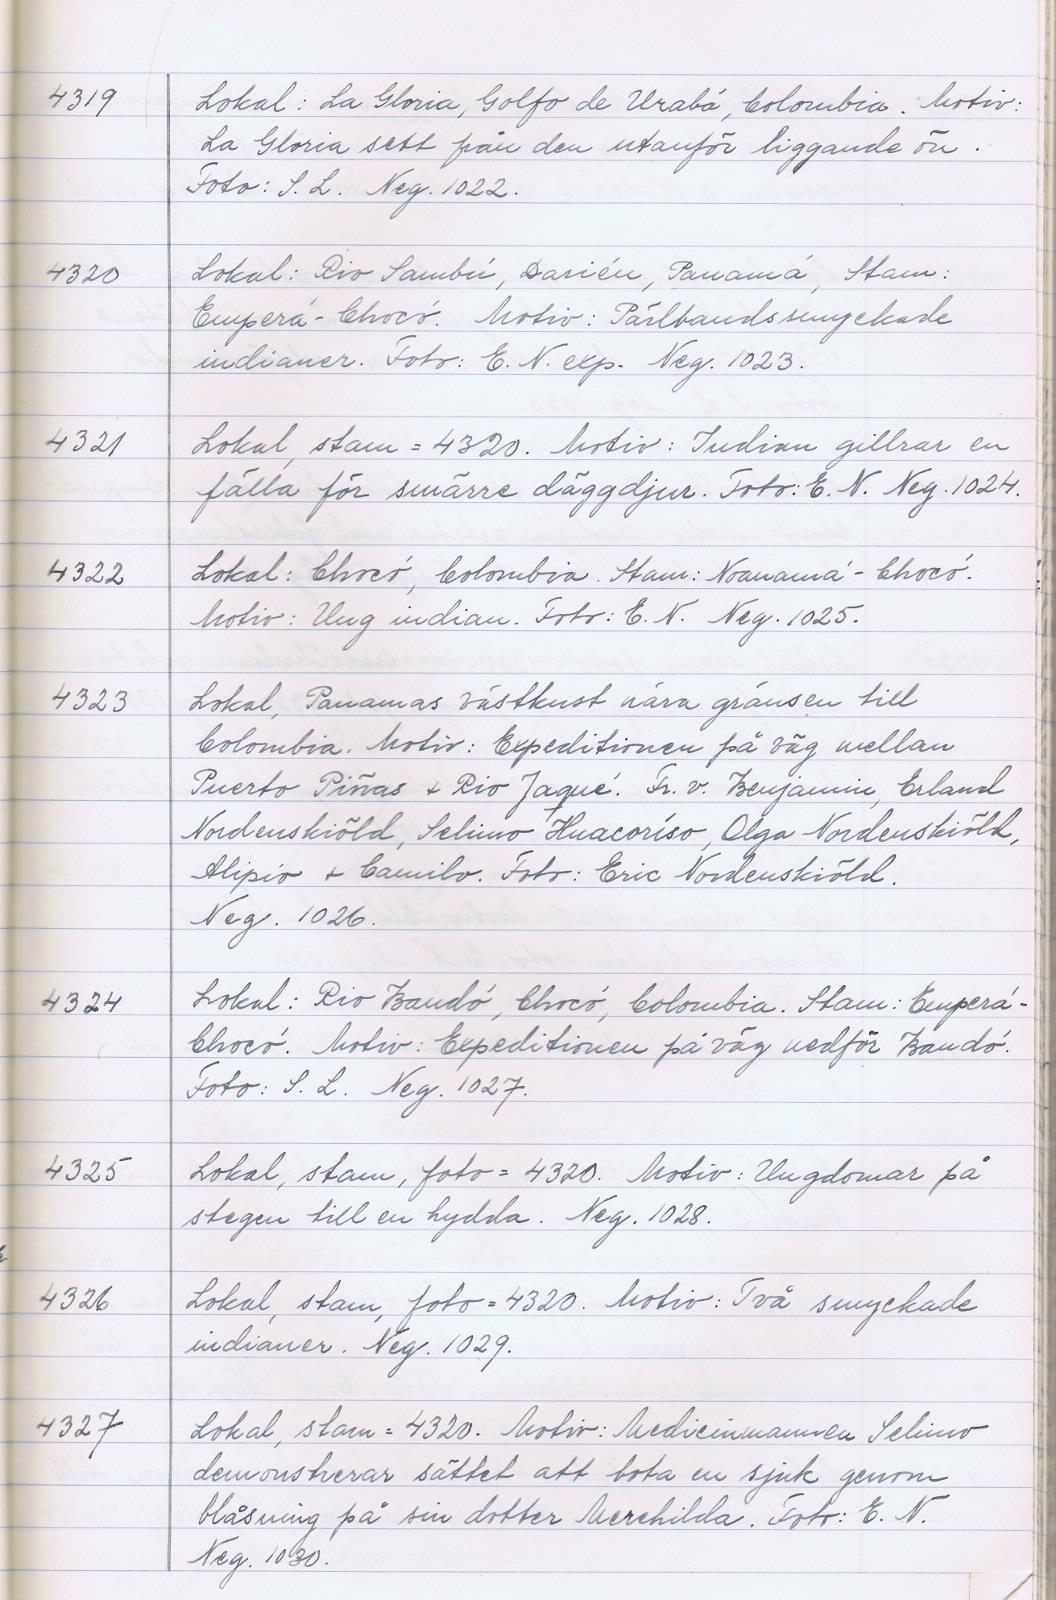 4319 Lokal: La Gloria, Golfo de Urabá, Colombia. Motiv:
La Gloria sett från den utanför liggande ön.
Foto: S. L. Neg. 1022.
4320 Lokal: Rio Sambú, Darién, Panamá, Stam:
Emperá-Chocó. Motiv: Pärlbandssmyckade
indianer. Foto: E. N. exp. Neg. 1023.
4321 Lokal, stam = 4320. Motiv: Indian gillrar en
fälla för smärre däggdjur. Foto: E. N. Neg. 1024.
4322 Lokal: Chocó, Colombia. Stam: Noanamá-Chocó.
Motiv: Ung indian. Foto: E. N. Neg. 1025.
4323 Lokal, Panamas västkust nära gränsen till
Colombia. Motiv: Expeditionen på väg mellan
Puerto Piñas + Rio Jaqué. Fr. v. Benjamin, Erland
Nordenskiöld, Selimo Huacoríso, Olga Nordenskiöld,
Alipio + Camilo. Foto: Eric Nordenskiöld.
Neg. 1026.
4324 Lokal: Rio Baudó, Chocó, Colombia. Stam: Emperá-
Chocó. Motiv: Expeditionen på väg nedför Baudó.
Foto: S. L. Neg. 1027.
4325 Lokal, stam, foto = 4320. Motiv: Ungdomar på
stegen till en hydda. Neg. 1028.
4326 Lokal, stam, foto = 4320. Motiv: Två smyckade
indianer. Neg. 1029.
4327 Lokal, stam = 4320. Motiv: Medicinmannen Selimo
demonstrerar sättet att bota en sjuk genom
blåsning på sin dotter Merchilda. Foto: E. N.
Neg. 1030.